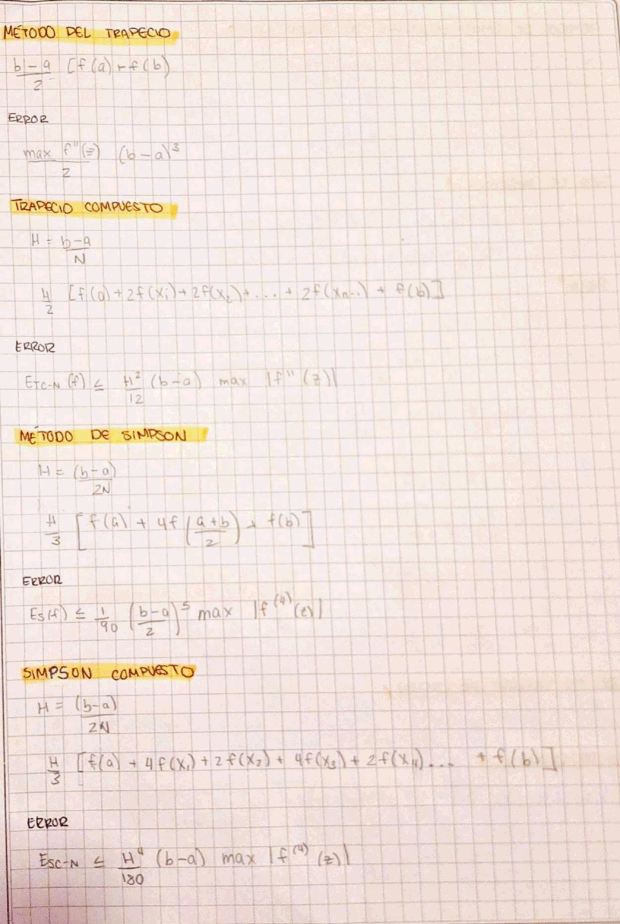 MÉTODO DEL TRAPECIO
b-a/2 [f(a)+f(b)
ERROR
max f''(z)/2 (b-a)³
TRAPECIO COMPUESTO
H = b-a/N
H/2 [f(a)+2f(x₁)+2f(x₂)+...+2f(xₙ₋₁)+f(b)]
ERROR
ETC-N (f) ≤ H²/12 (b-a) max |f''(z)|
MÉTODO DE SIMPSON
H = (b-a)/2N
H/3 [f(a) + 4f(a+b/2) + f(b)]
ERROR
ES(f) ≤ 1/90 (b-a/2)⁵ max |f⁽⁴⁾(e)|
SIMPSON COMPUESTO
H = (b-a)/2N
H/3 [f(a) + 4f(x₁)+2f(x₂)+4f(x₃)+2f(x₄)... + f(b)]
ERROR
ESC-N ≤ H⁴/180 (b-a) max |f⁽⁴⁾(z)|